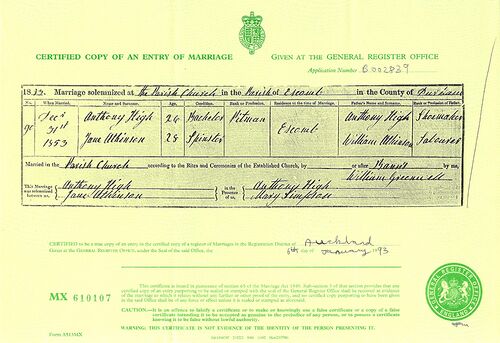 CERTIFIED COPY OF AN ENTRY OF MARRIAGE
GIVEN AT THE GENERAL REGISTER OFFICE
Application Number B002839
Marriage solemnized at The Parish Church in the Parish of Escomb in the County of Durham
No. When Married. Name and Surname. Age. Condition. Rank or Profession. Residence at the time of Marriage. Father's Name and Surname. Rank or Profession of Father.
Decr Anthony High 26 Bachelor Pitman Anthony High Shoemaker
31st Escomb
1853 Jane Atkinson 28 Spinster William Atkinson Labourer
Married in the Parish Church according to the Rites and Ceremonies of the Established Church, by or after Banns by me,
William Greenwell
This Marriage was solemnized between us, Anthony High Jane Atkinson in the Presence of us, Anthony High Mary Simpson
CERTIFIED to be a true copy of an entry in the certified copy of a register of Marriages in the Registration District of Auckland
Given at the GENERAL REGISTER OFFICE, under the Seal of the said Office, the 6th day of January 1993
MX 610107
This certificate is issued in pursuance of section 65 of the Marriage Act 1949. Sub-section 3 of that section provides that any
certified copy of an entry purporting to be sealed or stamped with the seal of the General Register Office shall be received as
evidence of the marriage to which it relates without any further or other proof of the entry, and no certified copy purporting to have been
given in the said Office shall be of any force or effect unless it is sealed or stamped as aforesaid.
CAUTION.—It is an offence to falsify a certificate or to make or knowingly use a false certificate or a copy of a false
certificate intending it to be accepted as genuine to the prejudice of any person, or to possess a certificate
knowing it to be false without lawful authority.
WARNING: THIS CERTIFICATE IS NOT EVIDENCE OF THE IDENTITY OF THE PERSON PRESENTING IT.
GENERAL REGISTER OFFICE
ENGLAND